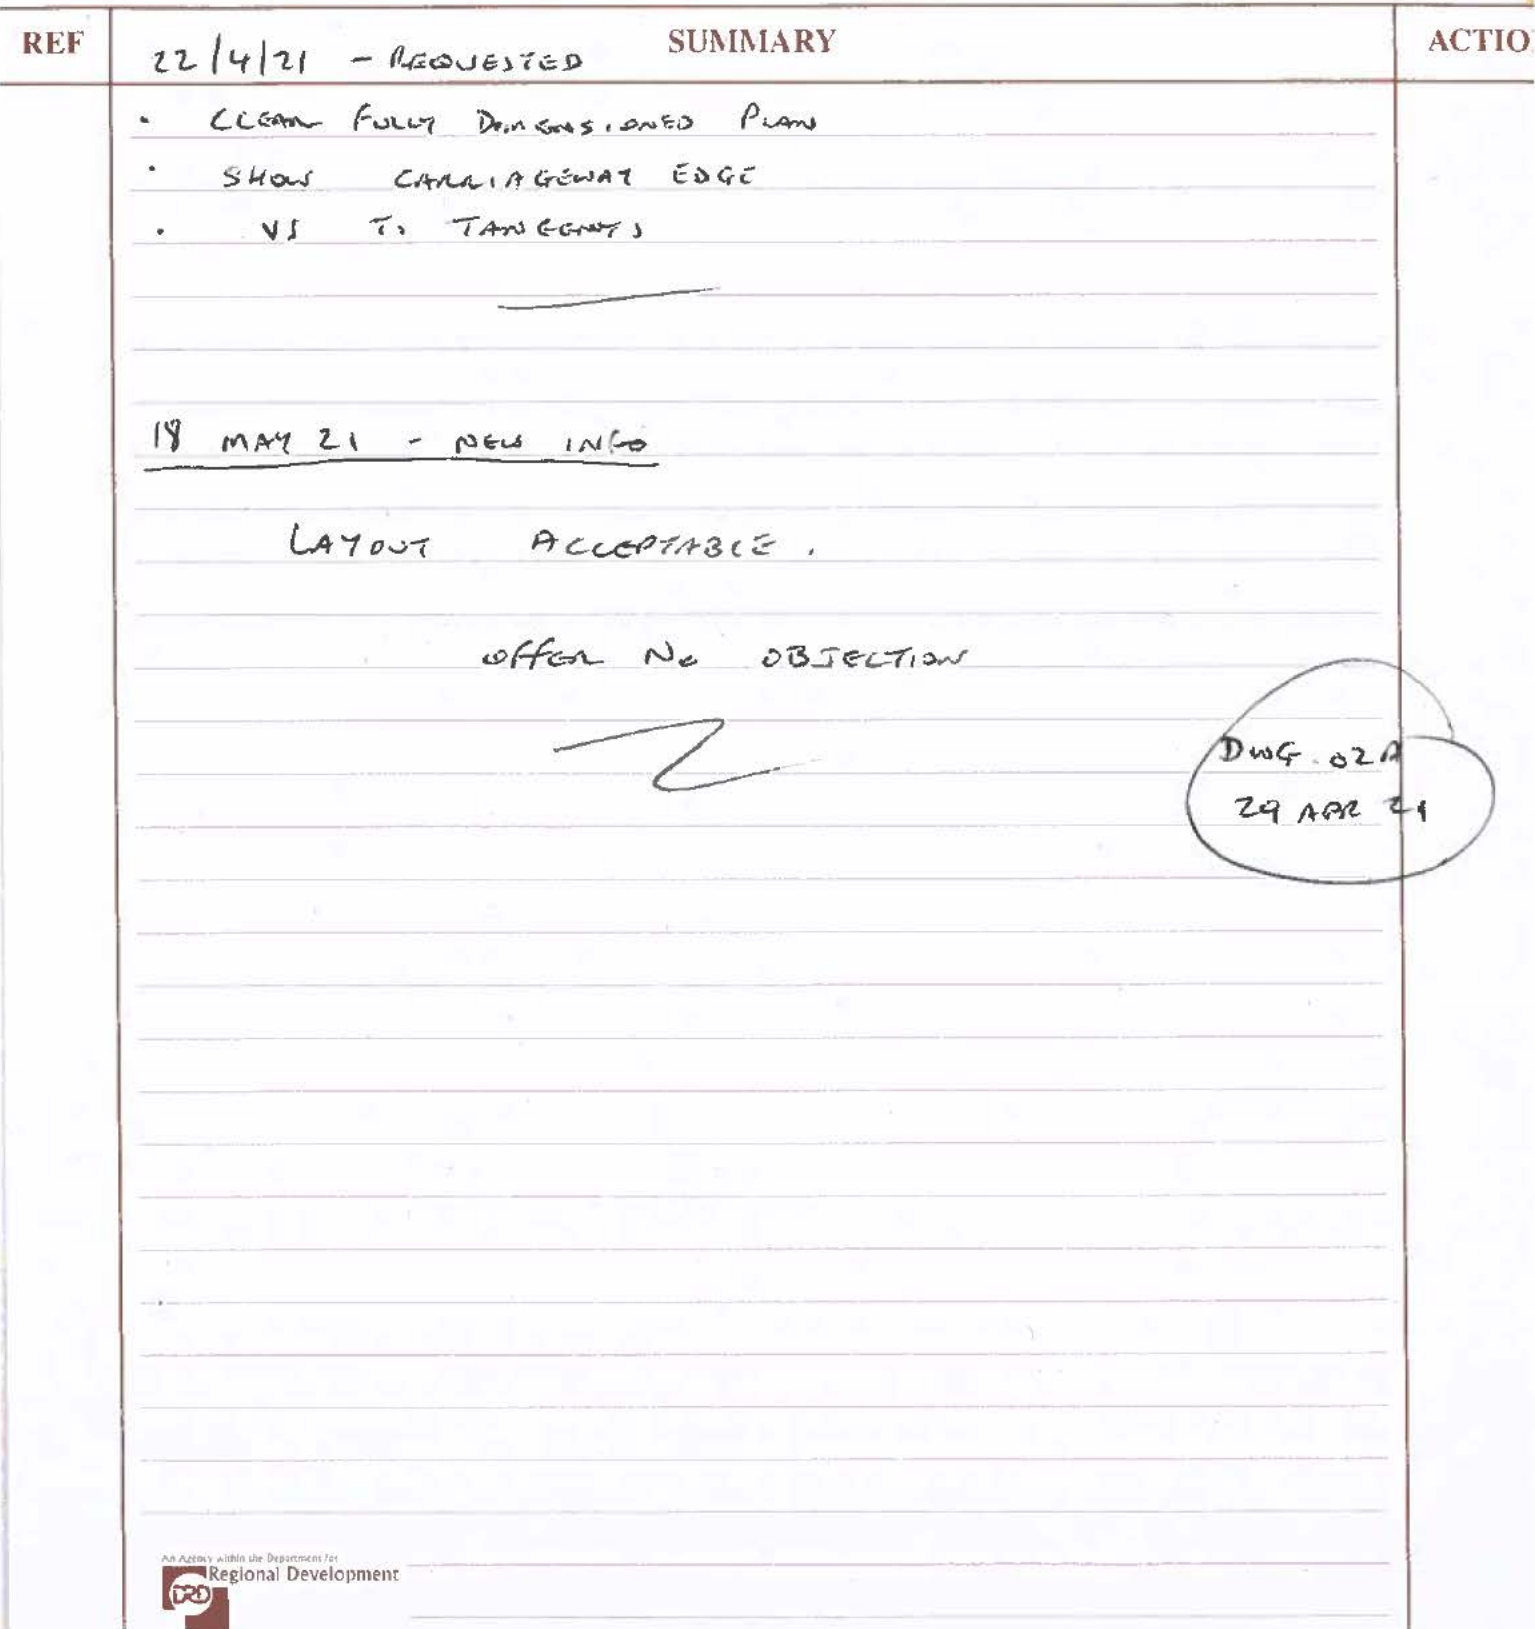 REF SUMMARY ACTIO
22/4/21 - REQUESTED
· CLEAR FULLY DIMENSIONED PLAN
· SHOW CARRIAGEWAY EDGE
· VS TO TANGENTS
18 MAY 21 - NEW INFO
LAYOUT ACCEPTABLE.
OFFER NO OBJECTION
DWG. 02A
29 APR 21
An Agency within the Department for
Regional Development
DRD